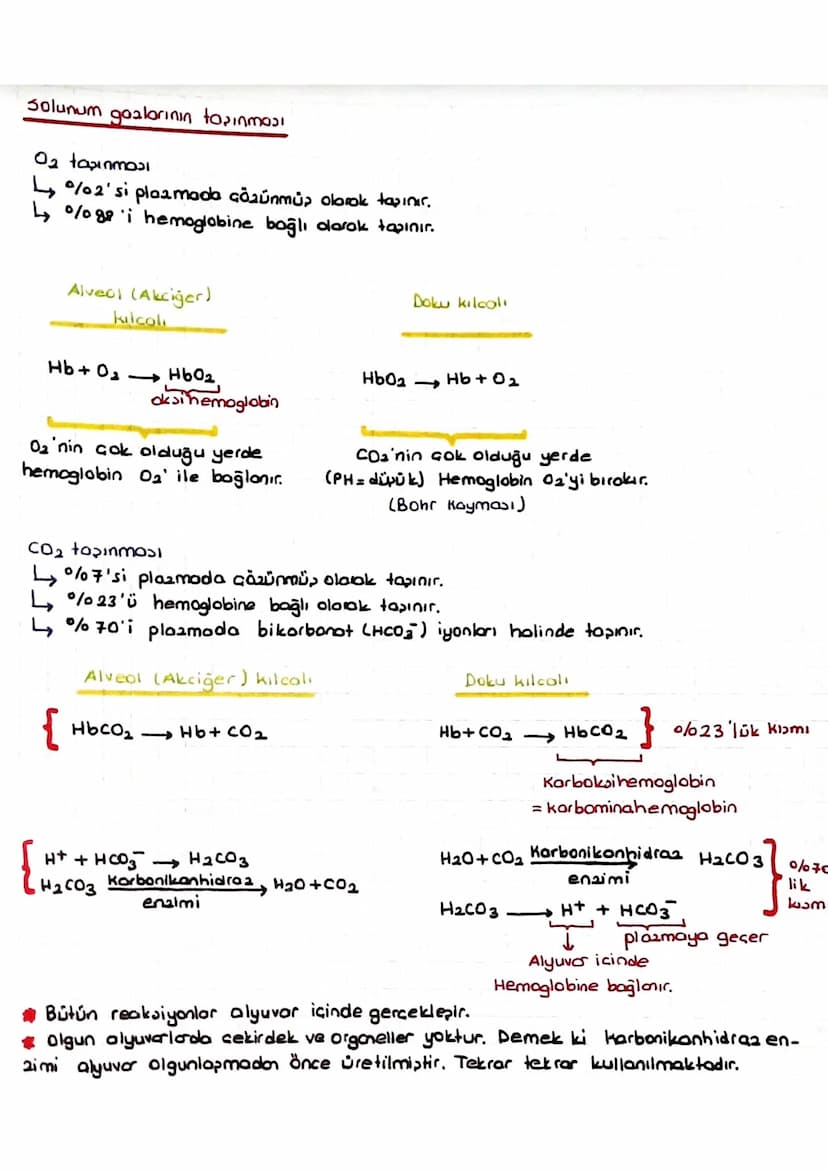 Solunum gazlarının taşınması
O₂ taşınması
↳ %2'si plazmada çözünmüş olarak taşınır.
↳ %98'i hemoglobine bağlı olarak taşınır.
Alveol (Akciğer)
kılcalı
Doku kılcalı
Hb + O₂ → HbO₂
oksihemoglobin
HbO₂ → Hb + O₂
O₂'nin çok olduğu yerde
hemoglobin O₂' ile bağlanır.
CO₂'nin çok olduğu yerde
(PH = düşük) Hemoglobin O₂'yi bırakır.
(Bohr Kayması)
CO₂ taşınması
↳ %7'si plazmada çözünmüş olarak taşınır.
↳ %23'ü hemoglobine bağlı olarak taşınır.
↳ %70'i plazmada bikarbonat (HCO₃⁻) iyonları halinde taşınır.
Alveol (Akciğer) kılcalı
Doku kılcalı
{ HbCO₂ → Hb + CO₂
Hb + CO₂ → HbCO₂ } %23'lük kısmı
Karboksihemoglobin
= karbominahemoglobin
{ H⁺ + HCO₃⁻ → H₂CO₃
H₂CO₃ Karbonikanhidraz → H₂O + CO₂
enzimi
H₂O + CO₂ Karbonikanhidraz → H₂CO₃ } %70
enzimi
lik
kısm
H₂CO₃ → H⁺ + HCO₃⁻
↓ plazmaya geçer
Alyuvar içinde
Hemoglobine bağlanır.
* Bütün reaksiyonlar alyuvar içinde gerçekleşir.
* Olgun alyuvarlarda çekirdek ve organeller yoktur. Demek ki karbonikanhidraz en-
zimi alyuvar olgunlaşmadan önce üretilmiştir. Tekrar tekrar kullanılmaktadır.